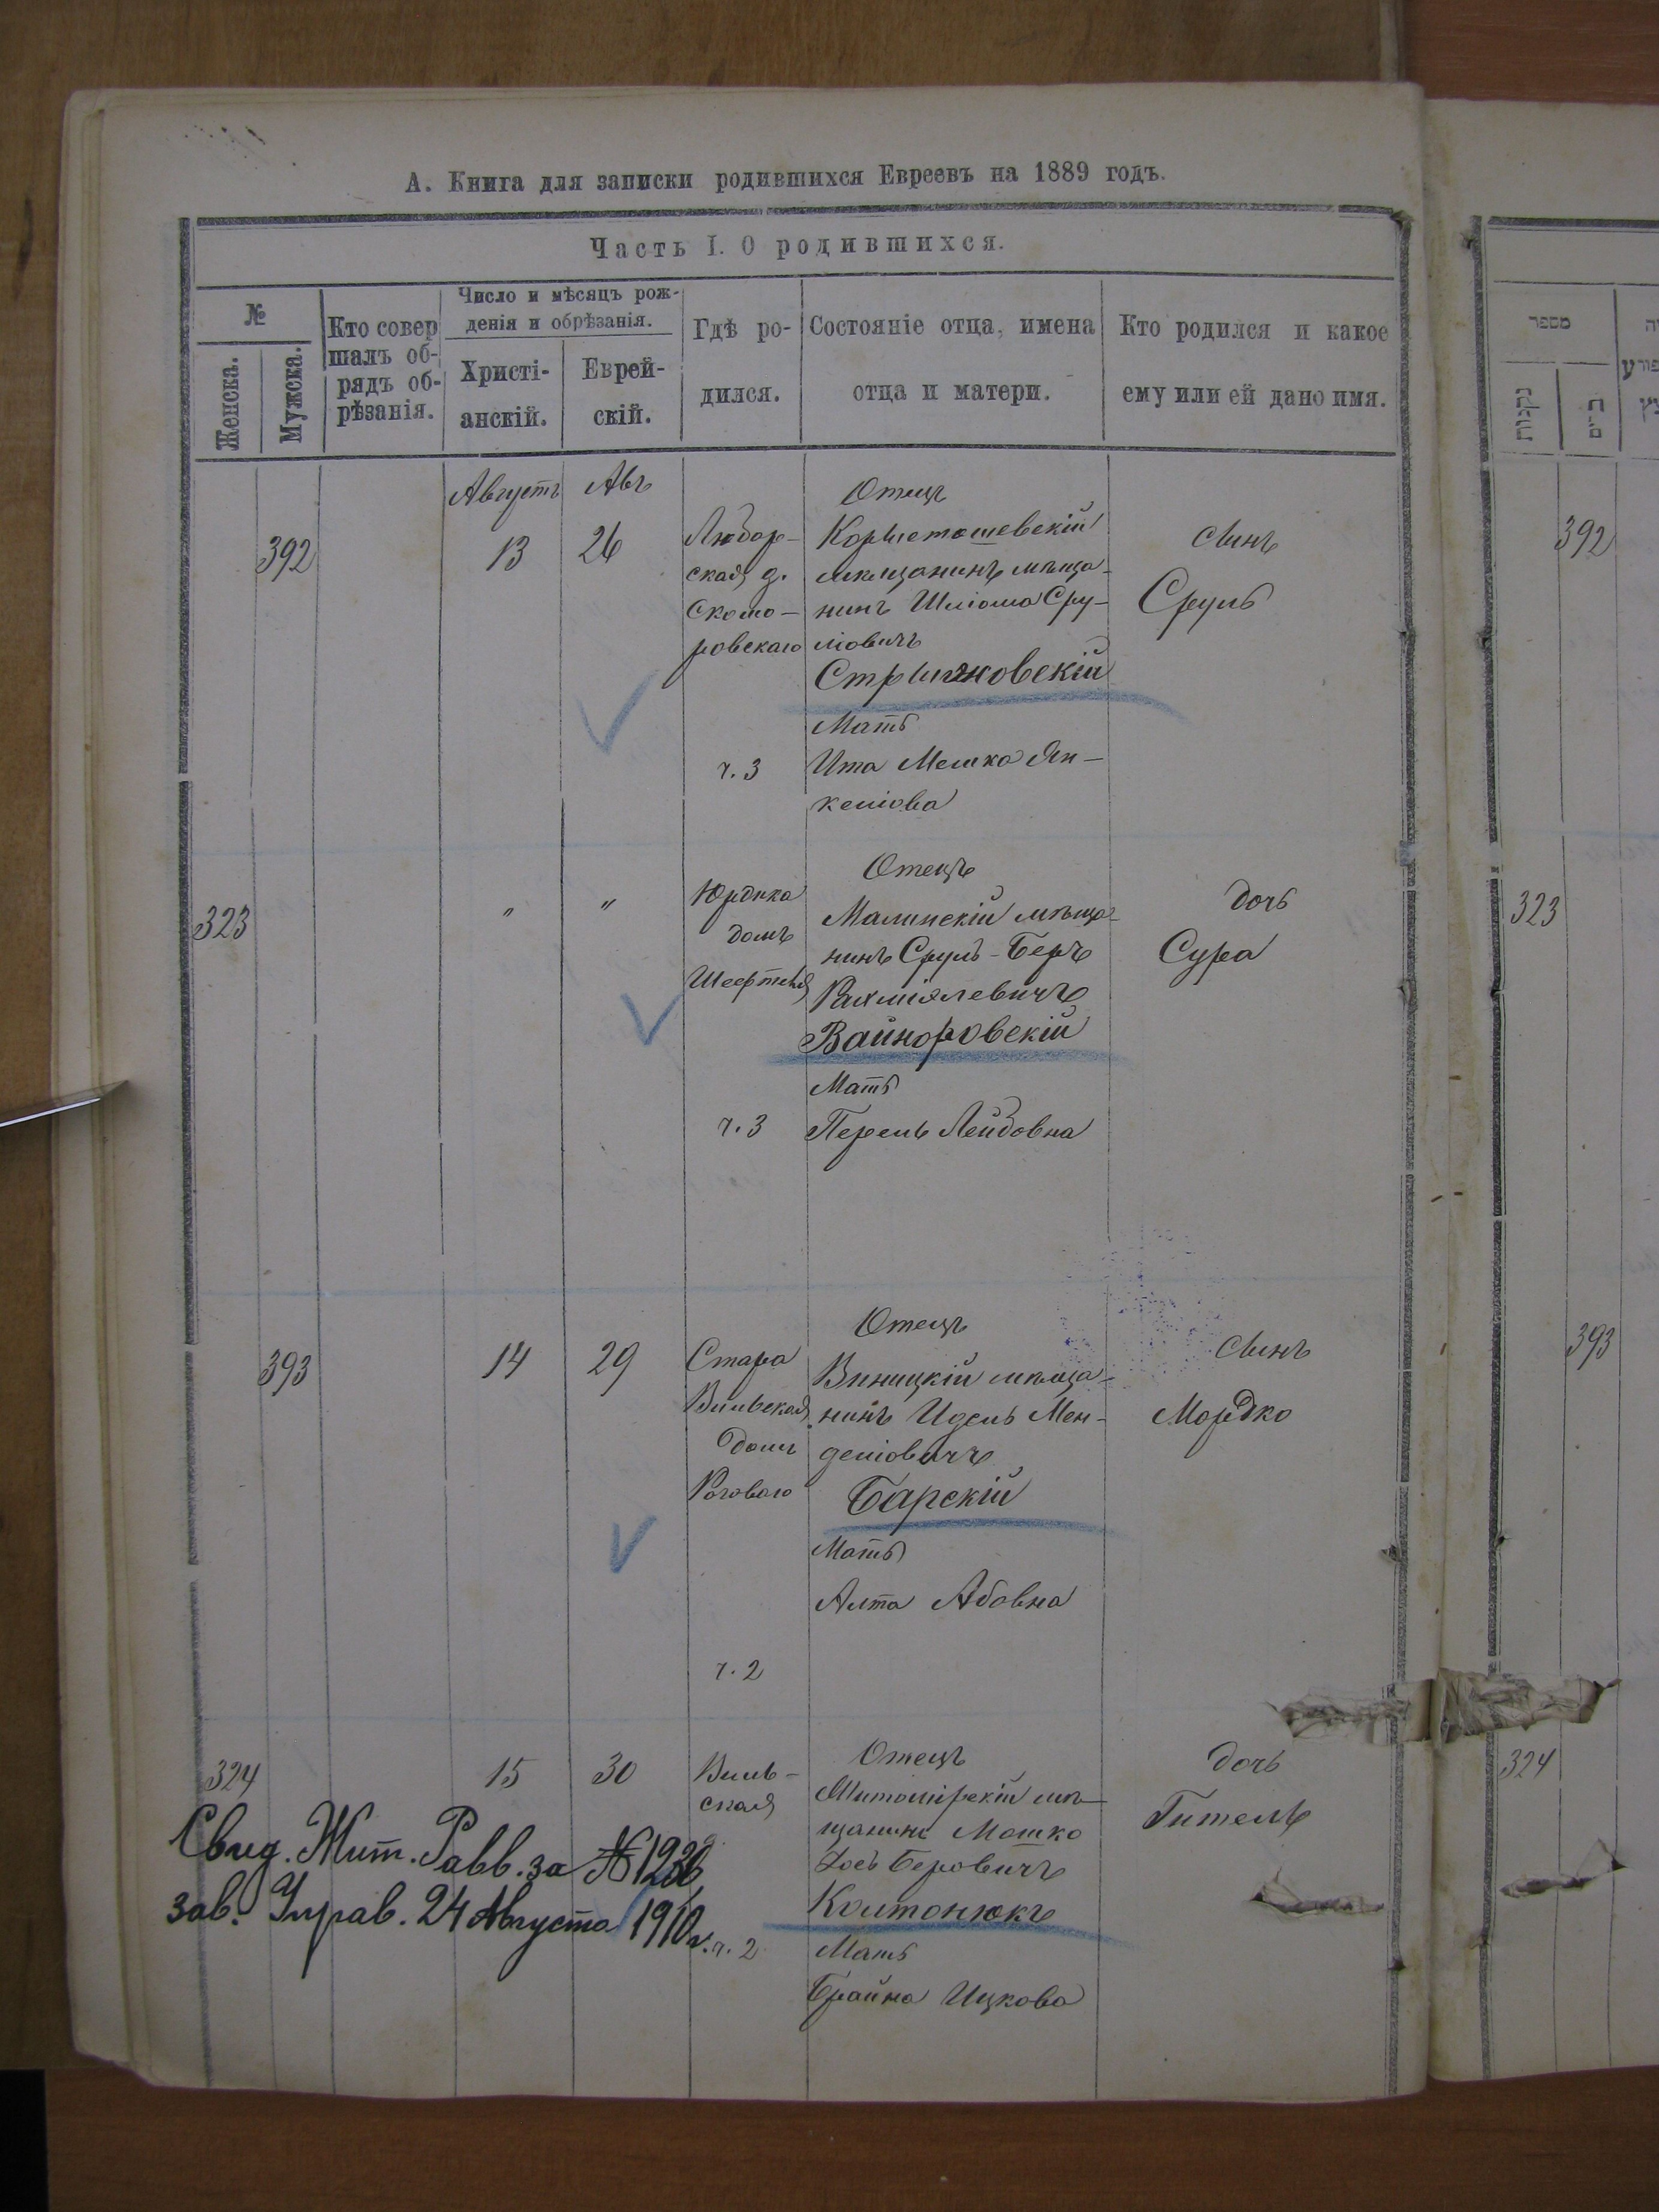 А. Книга для записки родившихся Евреевъ на 1889 годъ.
Часть I. О родившихся.
№
Женска.
Мужска.
Кто совер
шалъ об-
рядъ об-
рѣзанія.
Число и мѣсяцъ рож-
денія и обрѣзанія.
Христі-
анскій.
Еврей-
скій.
Гдѣ ро-
дился.
Состояніе отца, имена
отца и матери.
Кто родился и какое
ему или ей дано имя.
392
Августъ
13
Авъ
26
Любар-
ская д.
Скомо-
ровскаго
ч. 3
Отецъ
Коростышевскій
мѣща-
нинъ Шліома Сру-
ліовичъ
Стрыжовскій
Мать
Ита Мешка Ян-
келіова
сынъ
Сруль
323
"
"
Юрдика
домъ
ч. 3
Отецъ
Малинскій мѣща-
нинъ Сруль-Беръ
Рахміялевичъ
Вайноровскій
Мать
Перель Лейбовна
дочь
Сура
393
14
29
Стара
Вильская
домъ
Роговаго
ч. 2
Отецъ
Виницкій мѣща-
нинъ Идель Мен-
деліовичъ
Барскій
Мать
Алта Абовна
сынъ
Мордко
324
15
30
Виль-
ская
ч. 2
Отецъ
Житомірскій мѣ-
щанинъ Мошко
Іось Беровичъ
Колтонюкъ
Мать
Брайна Ицкова
дочь
Гитель
Свид. Жит. Равв. за № 1236
зав. Управ. 24 Августа 1910 г.
מספר
נקבות
זכרים
392
323
393
324